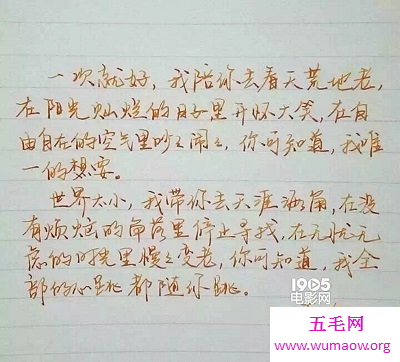 一次就好，我陪你去看天荒地老，
在阳光灿烂的日子里开怀大笑，在自
由自在的空气里吵々闹々，你可知道，我唯
一的想要。
世界太小，我带你去天涯海角，在没
有烦恼的角落里停止寻找，在无忧无
虑的时光里慢々变老，你可知道，我全
部的心跳都随你跳。
1905
电影网
五毛网
www.wumaow.org